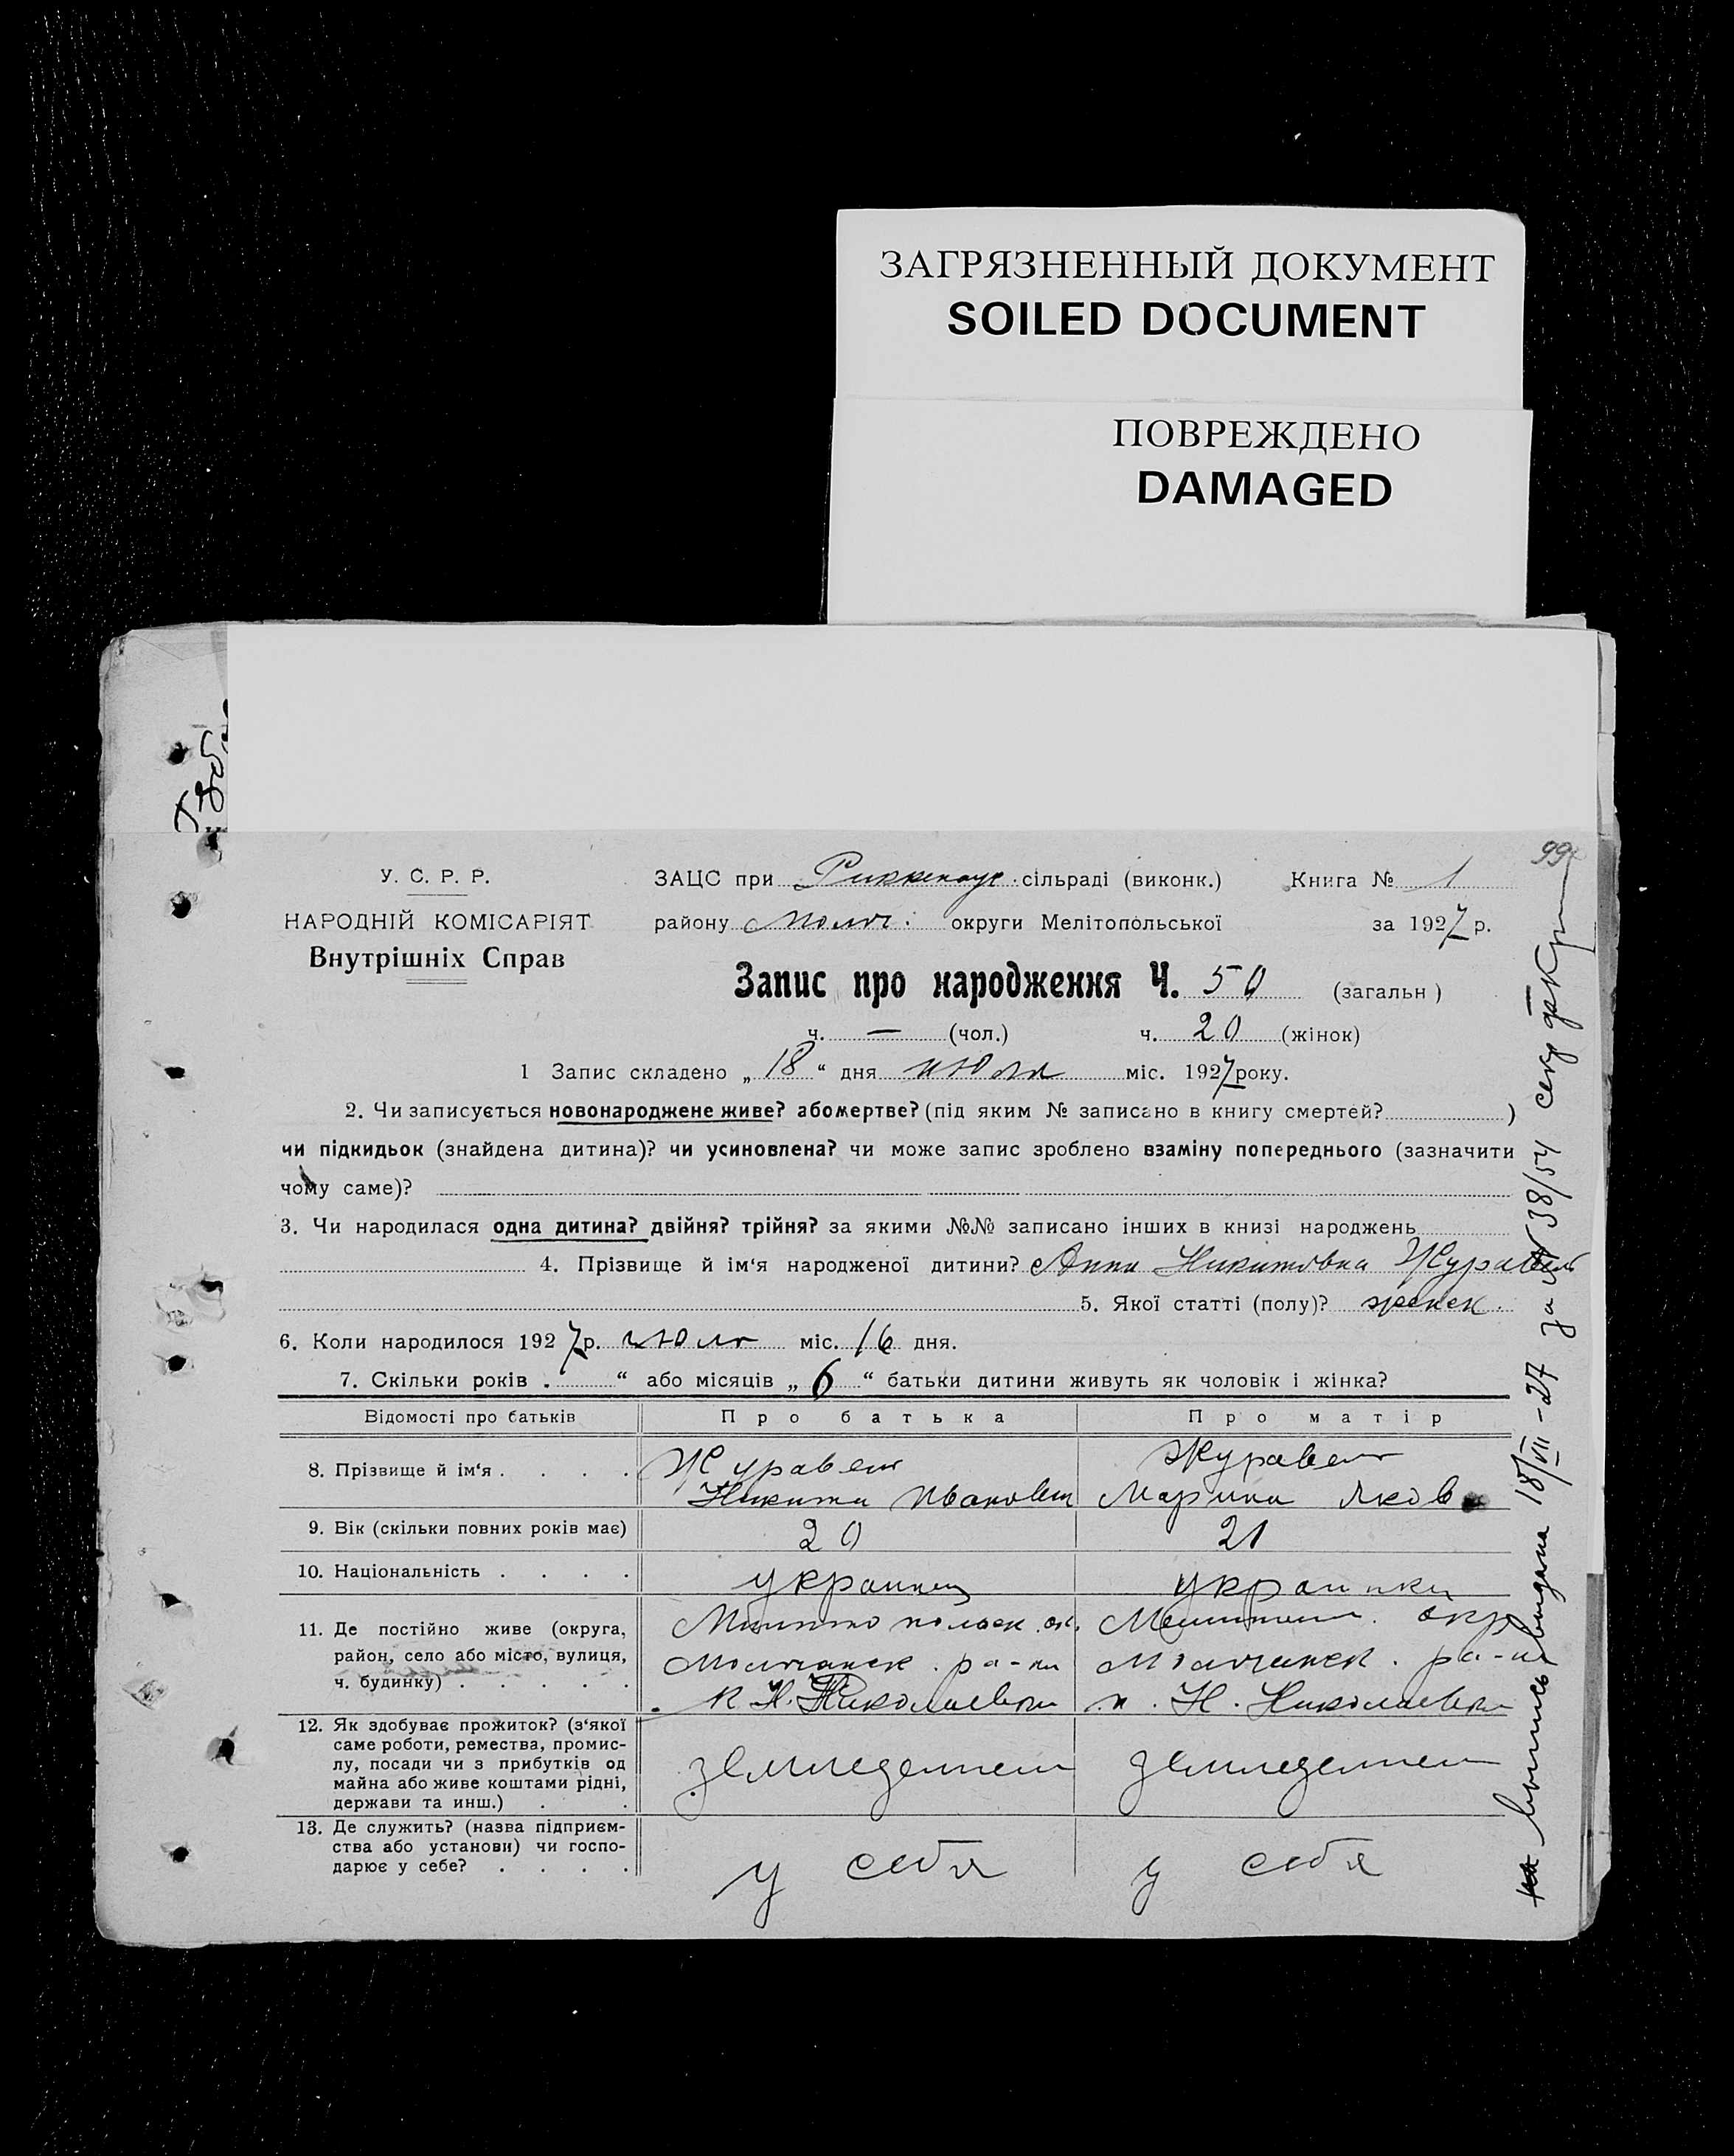 ЗАГРЯЗНЕННЫЙ ДОКУМЕНТ
SOILED DOCUMENT
ПОВРЕЖДЕНО
DAMAGED
99
У. С. Р. Р.
НАРОДНІЙ КОМІСАРІЯТ
Внутрішніх Справ
ЗАЦС при Риккенау сільраді (виконк.) Книга № 1
району Молоч. округи Мелітопольської за 1927 р.
Запис про народження Ч. 50 (загальн )
ч. — (чол.) ч. 20 (жінок)
1 Запис складено „ 18 “ дня июля міс. 1927 року.
2. Чи записується новонароджене живе? або мертве? (під яким № записано в книгу смертей? )
чи підкидьок (знайдена дитина)? чи усиновлена? чи може запис зроблено взаміну попереднього (зазначити
чому саме)?
3. Чи народилася одна дитина? двійня? трійня? за якими №№ записано інших в книзі народжень
4. Прізвище й ім‘я народженої дитини? Анна Никитовна Журавель
5. Якої статті (полу)? женск.
6. Коли народилося 1927 р. июля міс. 16 дня.
7. Скільки років . “ або місяців „ 6 “ батьки дитини живуть як чоловік і жінка?
Відомості про батьків Про батька Про матір
8. Прізвище й ім‘я . . . . Журавель Журавель
Никита Иванович Марина Яковл
9. Вік (скільки повних років має) 20 21
10. Національність . . . . украинец украинка
11. Де постійно живе (округа,
район, село або місто, вулиця,
ч. будинку) . . . . .
Мелитопольск. ок. Мелитоп. окр
Молочанск. ра-на Молочанск. ра-на
к Н. Николаевка к. Н. Николаевка
12. Як здобуває прожиток? (з‘якої
саме роботи, ремества, промис-
лу, посади чи з прибутків од
майна або живе коштами рідні,
держави та инш.) . .
земледелием земледелием
13. Де служить? (назва підприєм-
ства або установи) чи госпо-
дарює у себе? . . . .
у себя у себя
выпись выдана 18/VII-27 за № 38/54 секр